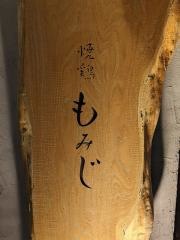 焼鶏
もみじ